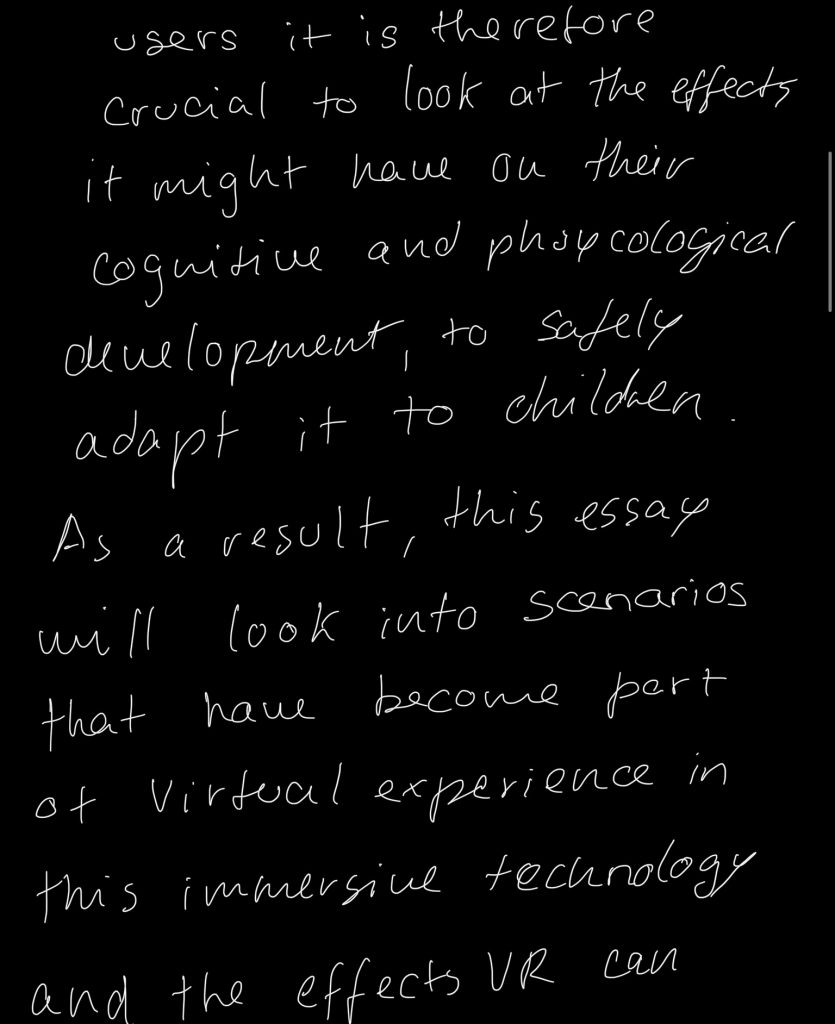 users it is therefore
crucial to look at the effects
it might have on their
cognitive and phsycological
development, to safely
adapt it to children.
As a result, this essay
will look into scenarios
that have become part
of virtual experience in
this immersive technology
and the effects VR can